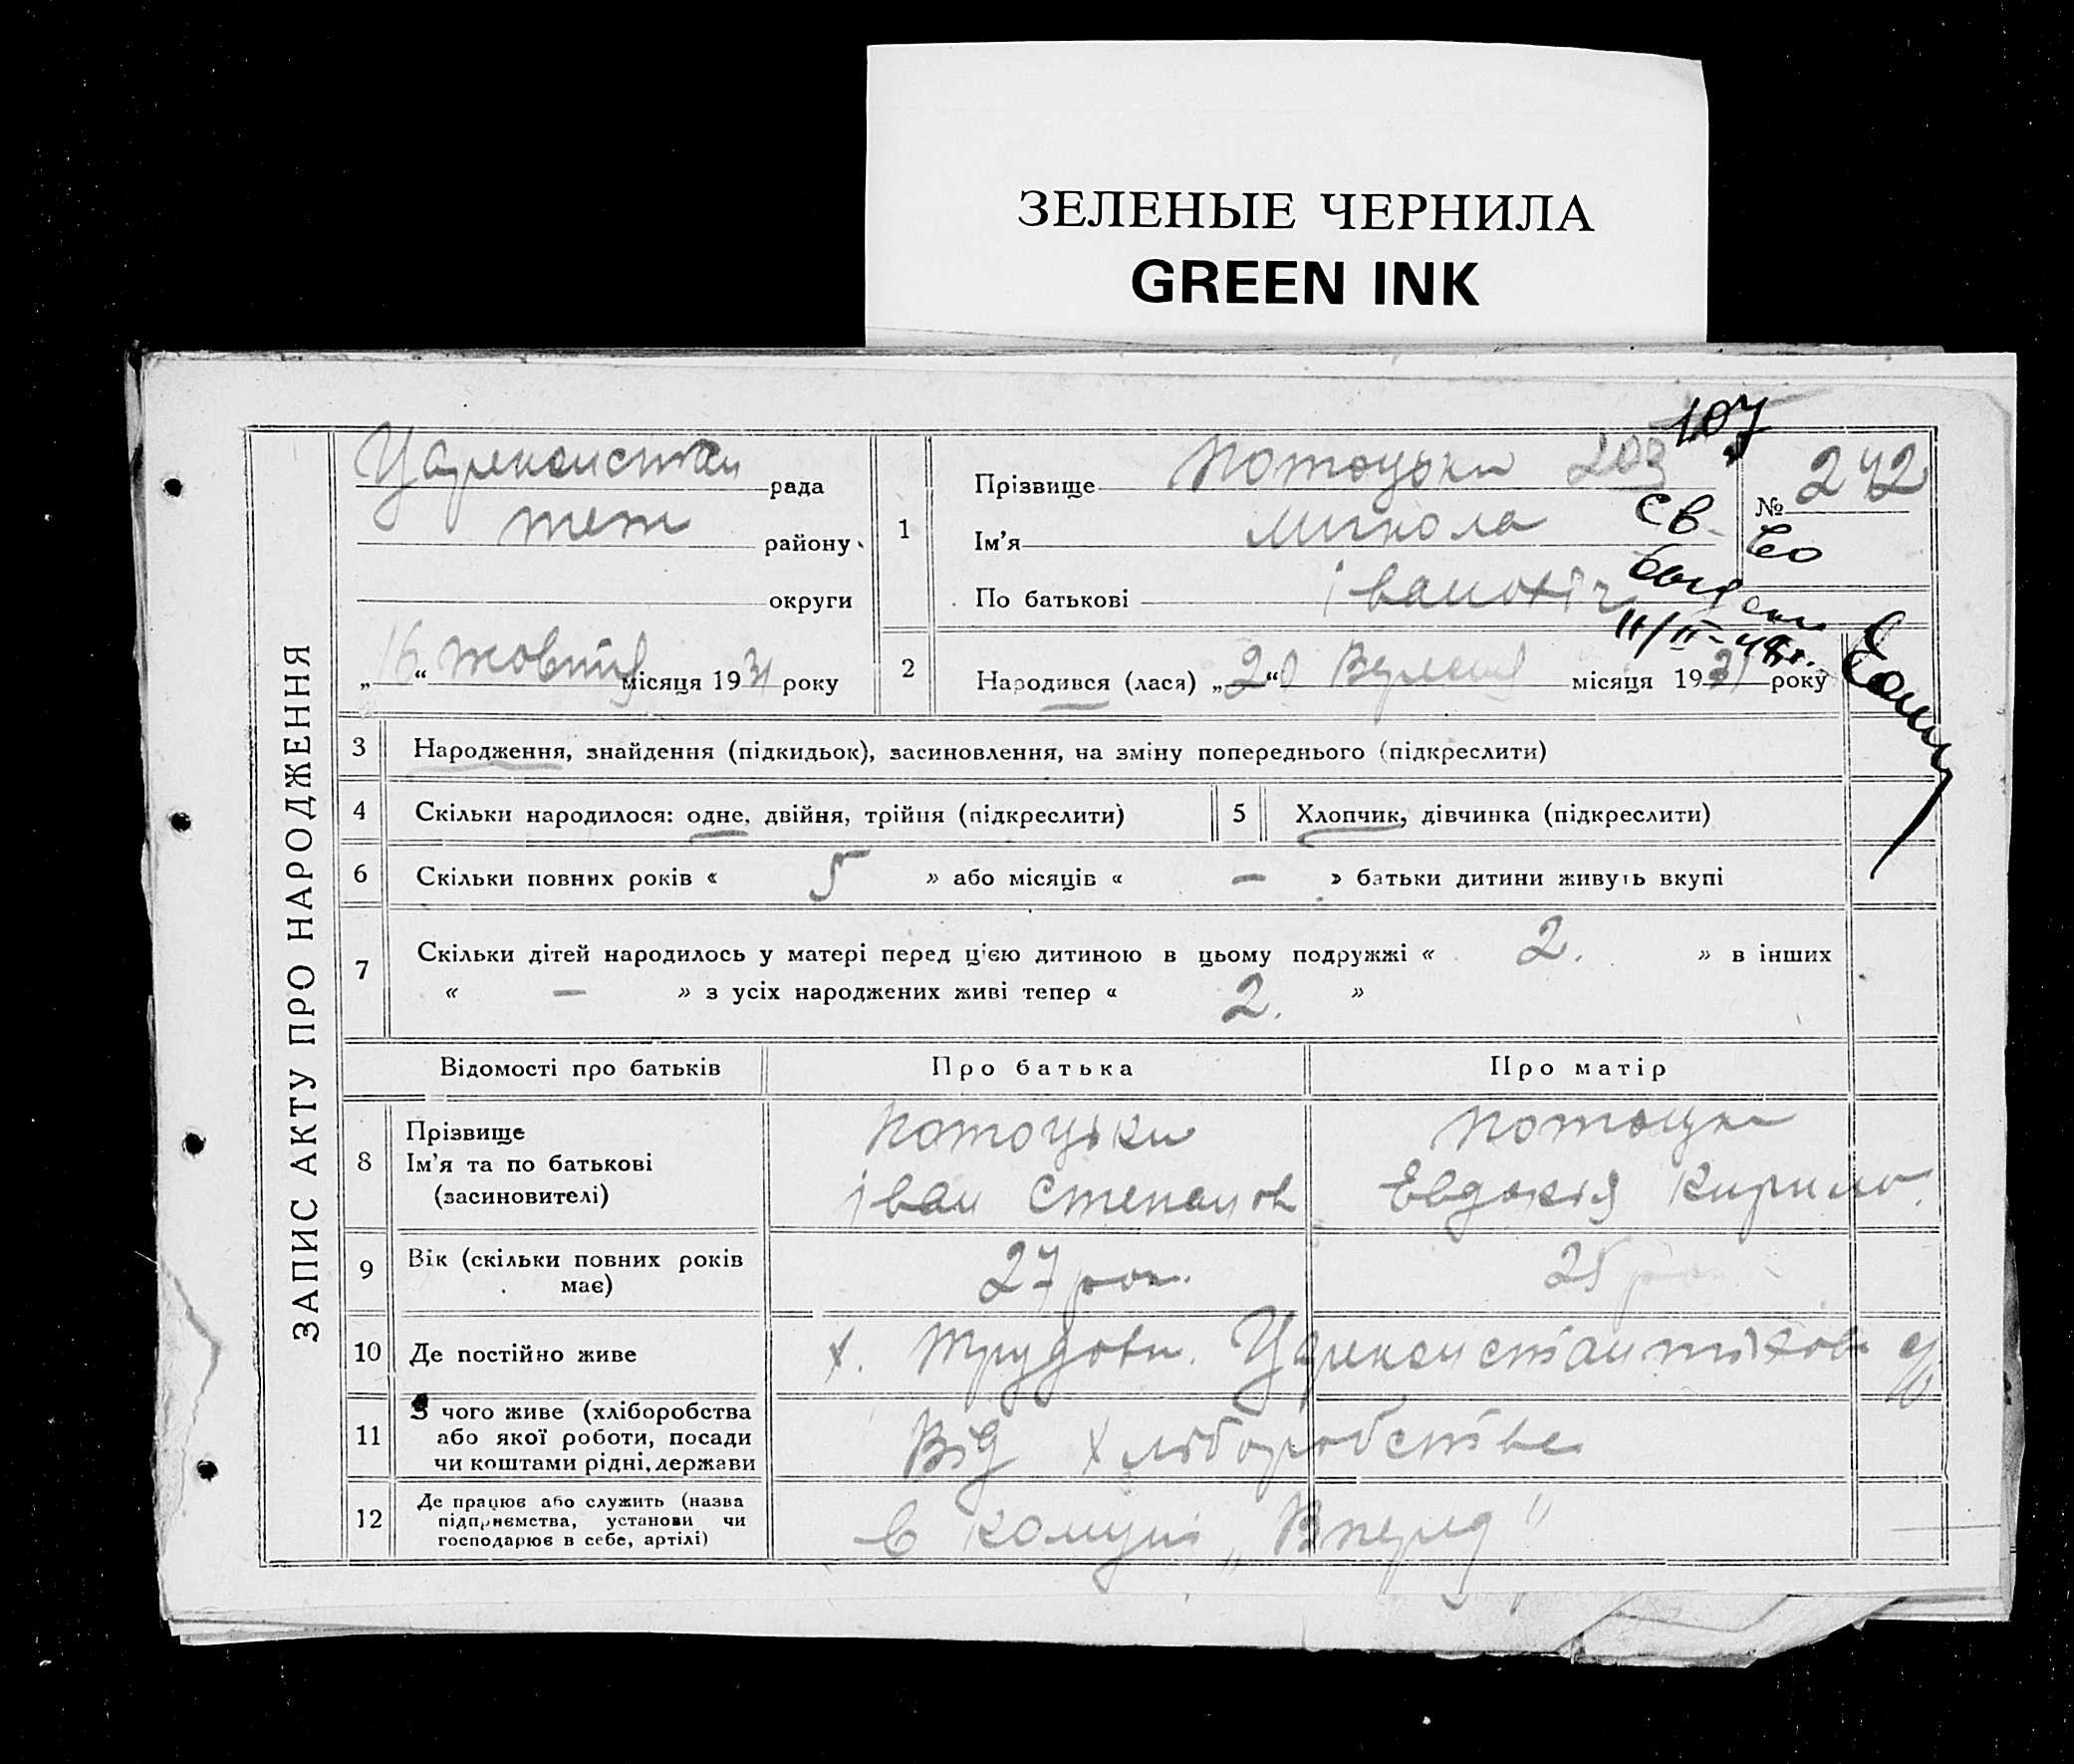 ЗЕЛЕНЫЕ ЧЕРНИЛА
GREEN INK
ЗАПИС АКТУ ПРО НАРОДЖЕННЯ
рада
тет району
округи
„16“ жовтня місяця 1931 року
107
1 Прізвище Потоцьки 203
№ 242
Ім'я Микола
По батькові
Св-во
11/II-48г.
2 Народився (лася) „20“ Вересня місяця 1931 року
3 Народження, знайдення (підкидьок), засиновлення, на зміну попереднього (підкреслити)
4 Скільки народилося: одне, двійня, трійня (підкреслити) 5 Хлопчик, дівчинка (підкреслити)
6 Скільки повних років « 5 » або місяців « — » батьки дитини живуть вкупі
7 Скільки дітей народилось у матері перед цією дитиною в цьому подружжі « 2. » в інших
« — » з усіх народжених живі тепер « 2. »
Відомості про батьків Про батька Про матір
8 Прізвище
Ім'я та по батькові
(засиновителі)
Потоцьки
іван Степанов
Потоцки
Евдокія Кирило.
9 Вік (скільки повних років
має)
27 рок.
25
10 Де постійно живе
х. Трудови.
11 З чого живе (хліборобства
або якої роботи, посади
чи коштами рідні, держави
Від хліборобства
12 Де працює або служить (назва
підприємства, установи чи
господарює в себе, артілі)
в комуні „Вперед"